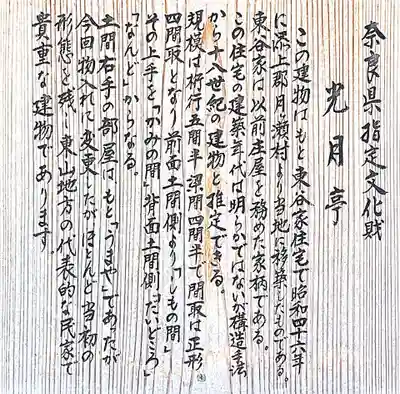 奈良県指定文化財
光月亭
この建物はもと東谷家住宅で昭和四十六年
に添上郡月ヶ瀬村より当地に移築したものである。
東谷家は以前庄屋を務めた家柄である。
この住宅の建築年代は明らかではないが構造手法
から十八世紀の建物と推定できる。
規模は桁行五間半梁間四間半で間取は正形
四間取となり前面土間側より「しもの間」
その上手を「かみの間」背面土間側「だいどころ」
「なんど」からなる。
土間右手の部屋はもと「うまや」であったが
今回物入れに変更したがほとんど当初の
形態を残し東山地方の代表的な民家で
貴重な建物であります。